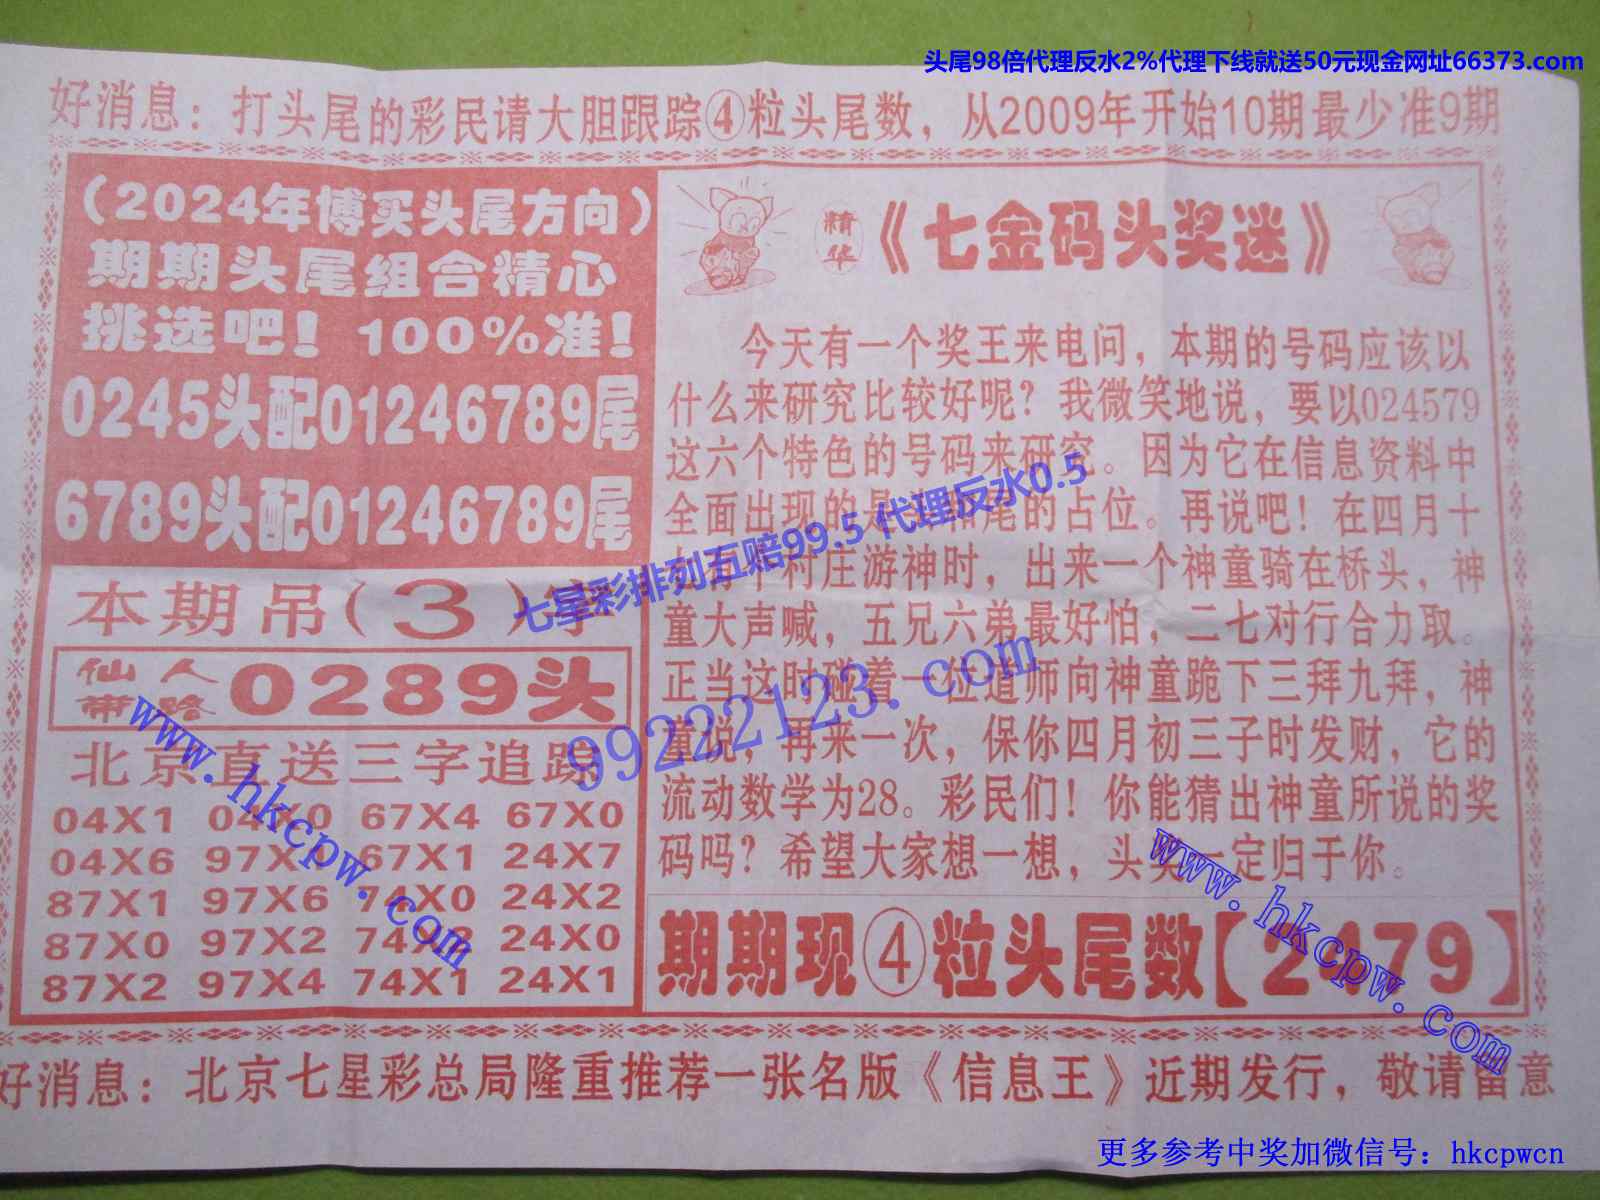 头尾98倍代理反水2%代理下线就送50元现金网址66373.com
好消息：打头尾的彩民请大胆跟踪④粒头尾数，从2009年开始10期最少准9期
（2024年博买头尾方向）
期期头尾组合精心
挑选吧！100%准！
0245头配01246789尾
6789头配01246789尾
本期吊（3）字
仙人带路 0289头
北京直送三字追踪
04X1 04X0 67X4 67X0
04X6 97X 67X1 24X7
87X1 97X6 74X0 24X2
87X0 97X2 74X 24X0
87X2 97X4 74X1 24X1
精华《七金码头奖迷》
今天有一个奖王来电问，本期的号码应该以
什么来研究比较好呢？我微笑地说，要以024579
这六个特色的号码来研究。因为它在信息资料中
全面出现的是头和尾的占位。再说吧！在四月十
有个村庄游神时，出来一个神童骑在桥头，神
童大声喊，五兄六弟最好怕，二七对行合力取。
正当这时碰着一位道师向神童跪下三拜九拜，神
童说，再来一次，保你四月初三子时发财，它的
流动数学为28。彩民们！你能猜出神童所说的奖
码吗？希望大家想一想，头奖一定归于你。
期期现④粒头尾数【2479】
好消息：北京七星彩总局隆重推荐一张名版《信息王》近期发行，敬请留意
七星彩排列五赔99.5 代理反水0.5
99222123.com
www.hkcpw.com
www.hkcpw.com
更多参考中奖加微信号：hkcpwcn